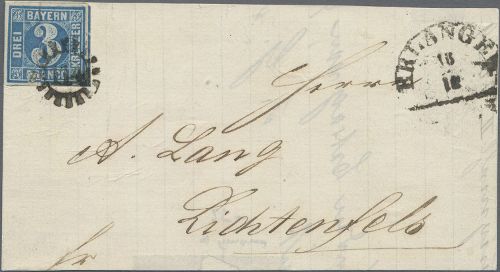 BAYERN
DREI
3
KREUZER
FRANCO
ERLANGEN
18
12
Herrn
A. Lang
Lichtenfels
fr